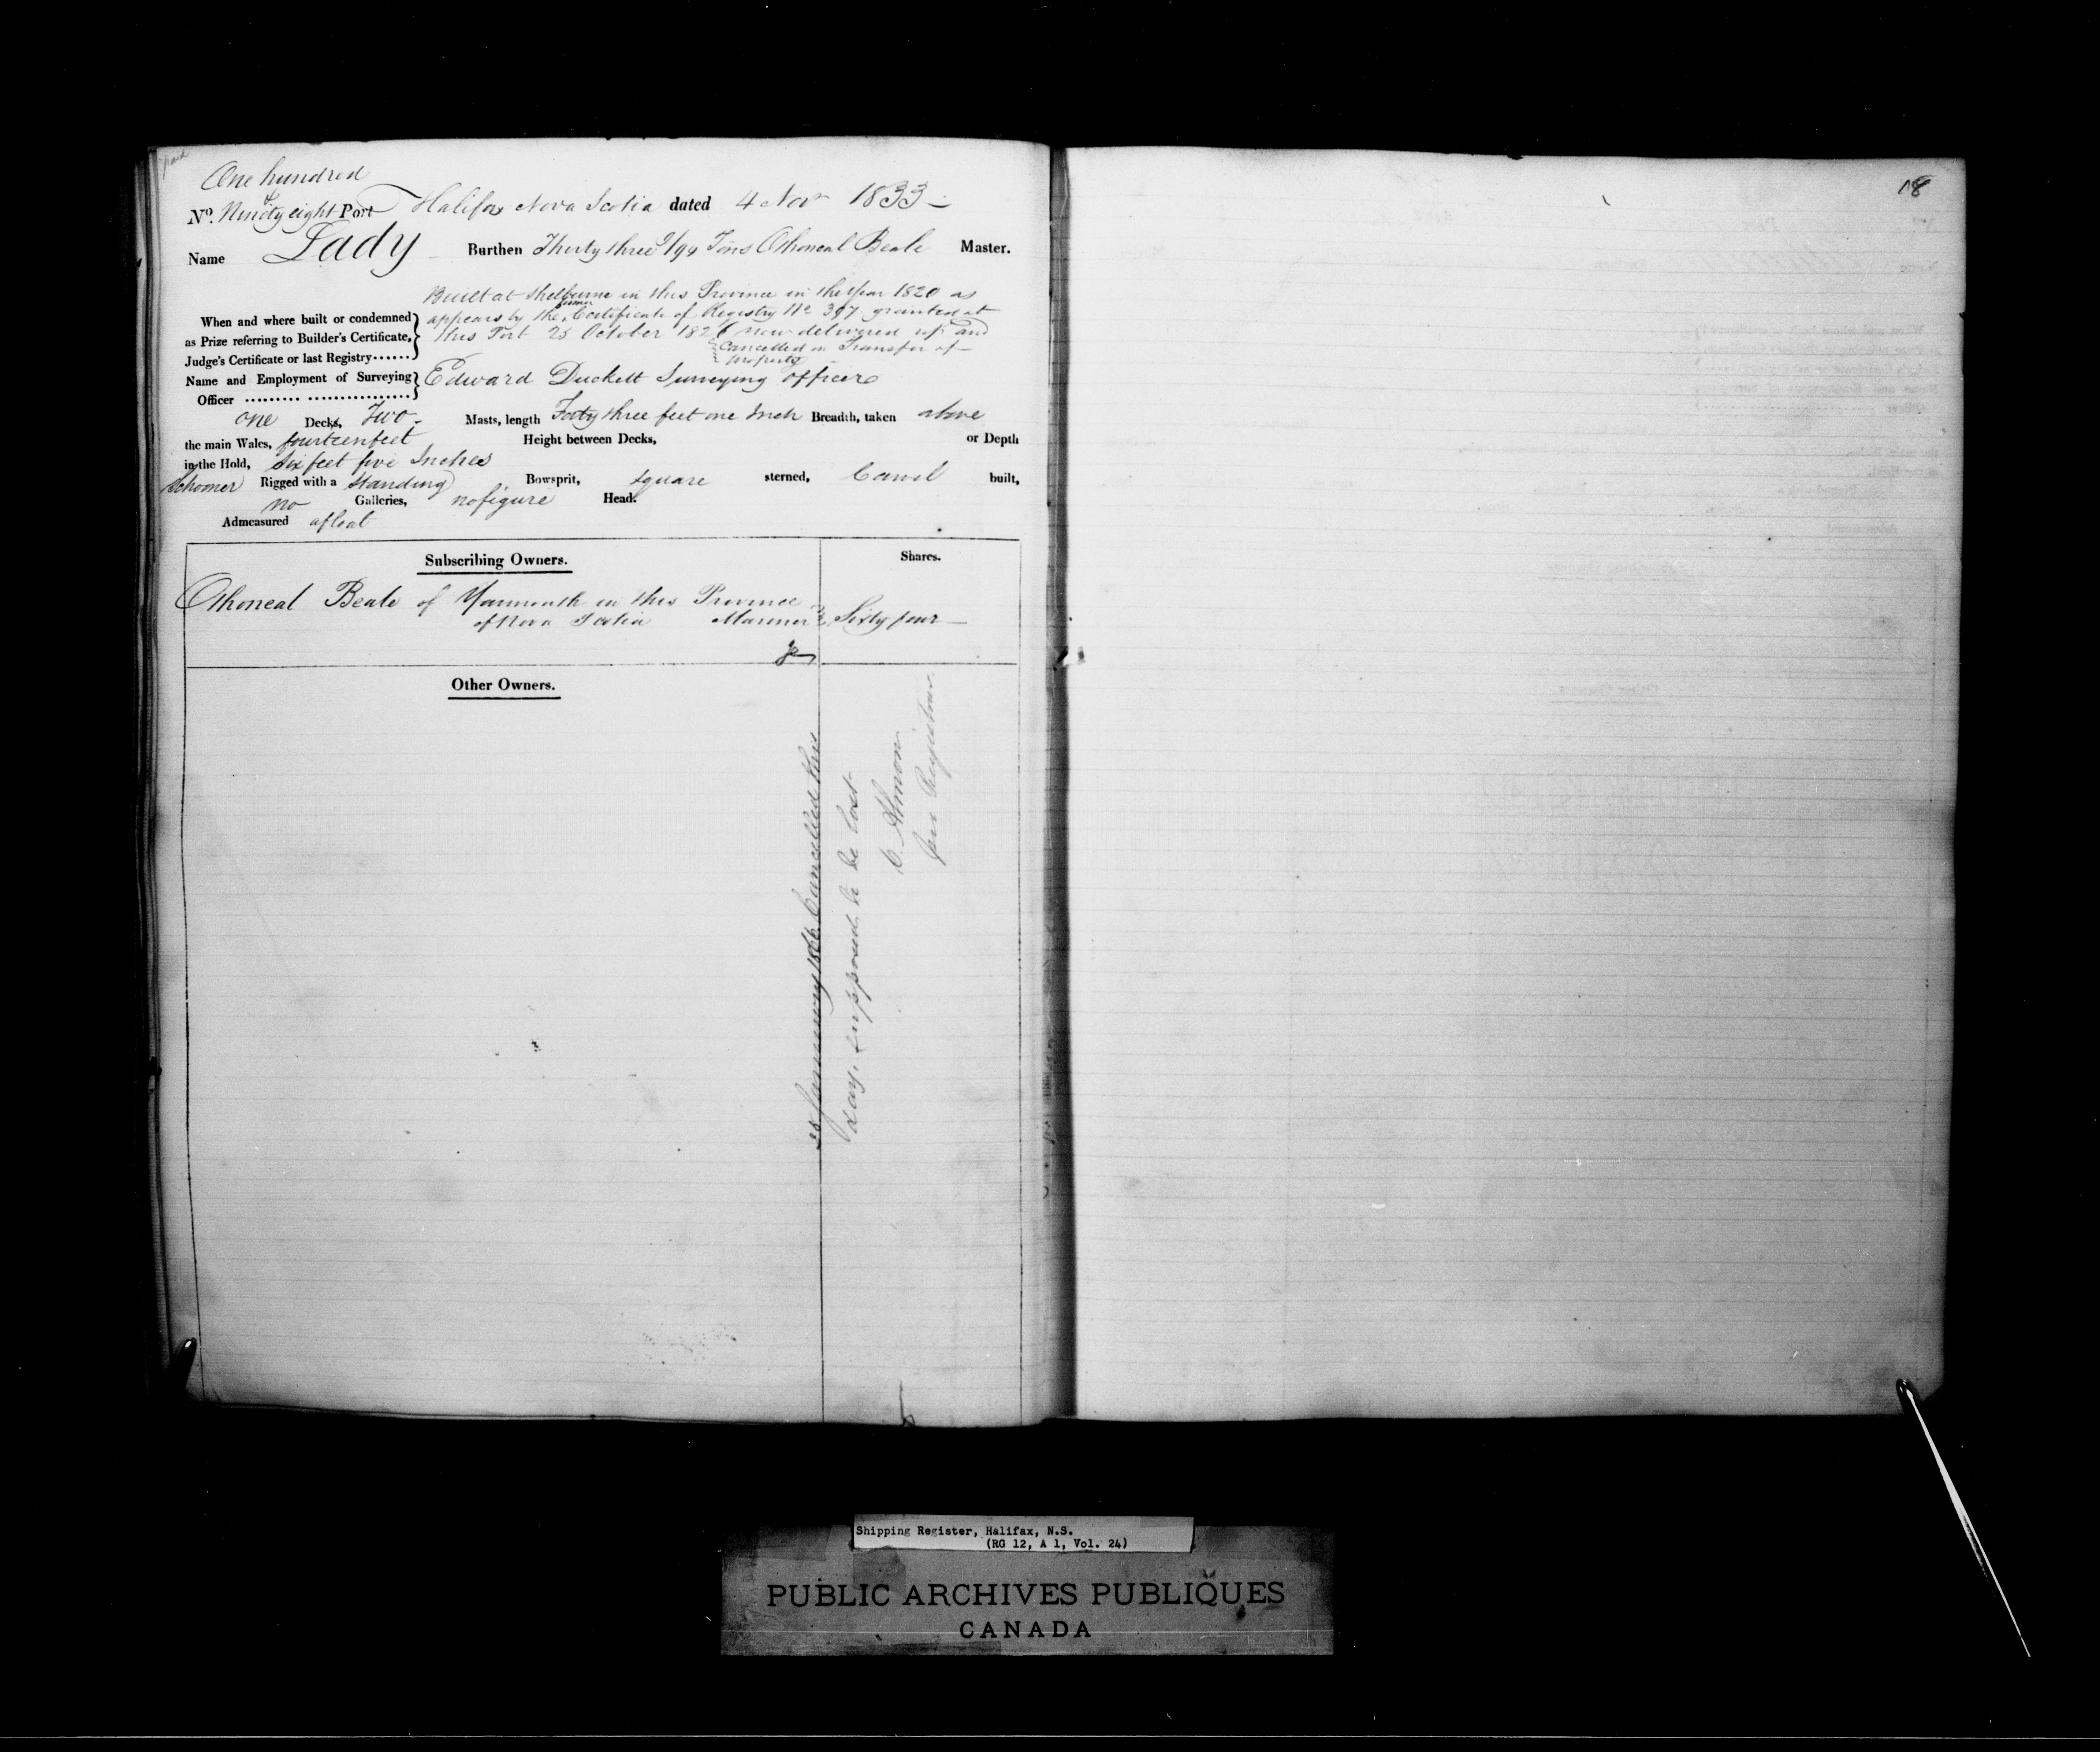 One hundred
No. Ninety & eight Port Halifax Nova Scotia dated 4 Novr 1833
Name Lady Burthen Thirty three 9/94 Tons Othoneal Beale Master.
Built at Shelburne in this Province in the Year 1820 as
When and where built or condemned appears by the former Certificate of Registry No 397 granted at
as Prize referring to Builder's Certificate, this Port 25 October 1826 now delivered up and
Judge's Certificate or last Registry...... Cancelled on Transfer of
property
Name and Employment of Surveying Edward Duckett Surveying officer
Officer
one Decks, Two Masts, length Forty three feet one Inch Breadth, taken above
the main Wales, fourteen feet Height between Decks, or Depth
in the Hold, Six feet five Inches
Schooner Rigged with a Standing Bowsprit, square sterned, Carvel built,
no Galleries, no figure Head.
Admeasured afloat
Subscribing Owners. Shares.
Othoneal Beale of Yarmouth in this Province
of Nova Scotia Mariner Sixty four
Other Owners.
28 January 1866 Cancelled this
day, supposed to be lost
C. Almon
for Registrar
18
Shipping Register, Halifax, N.S.
(RG 12, A 1, Vol. 24)
PUBLIC ARCHIVES PUBLIQUES
CANADA